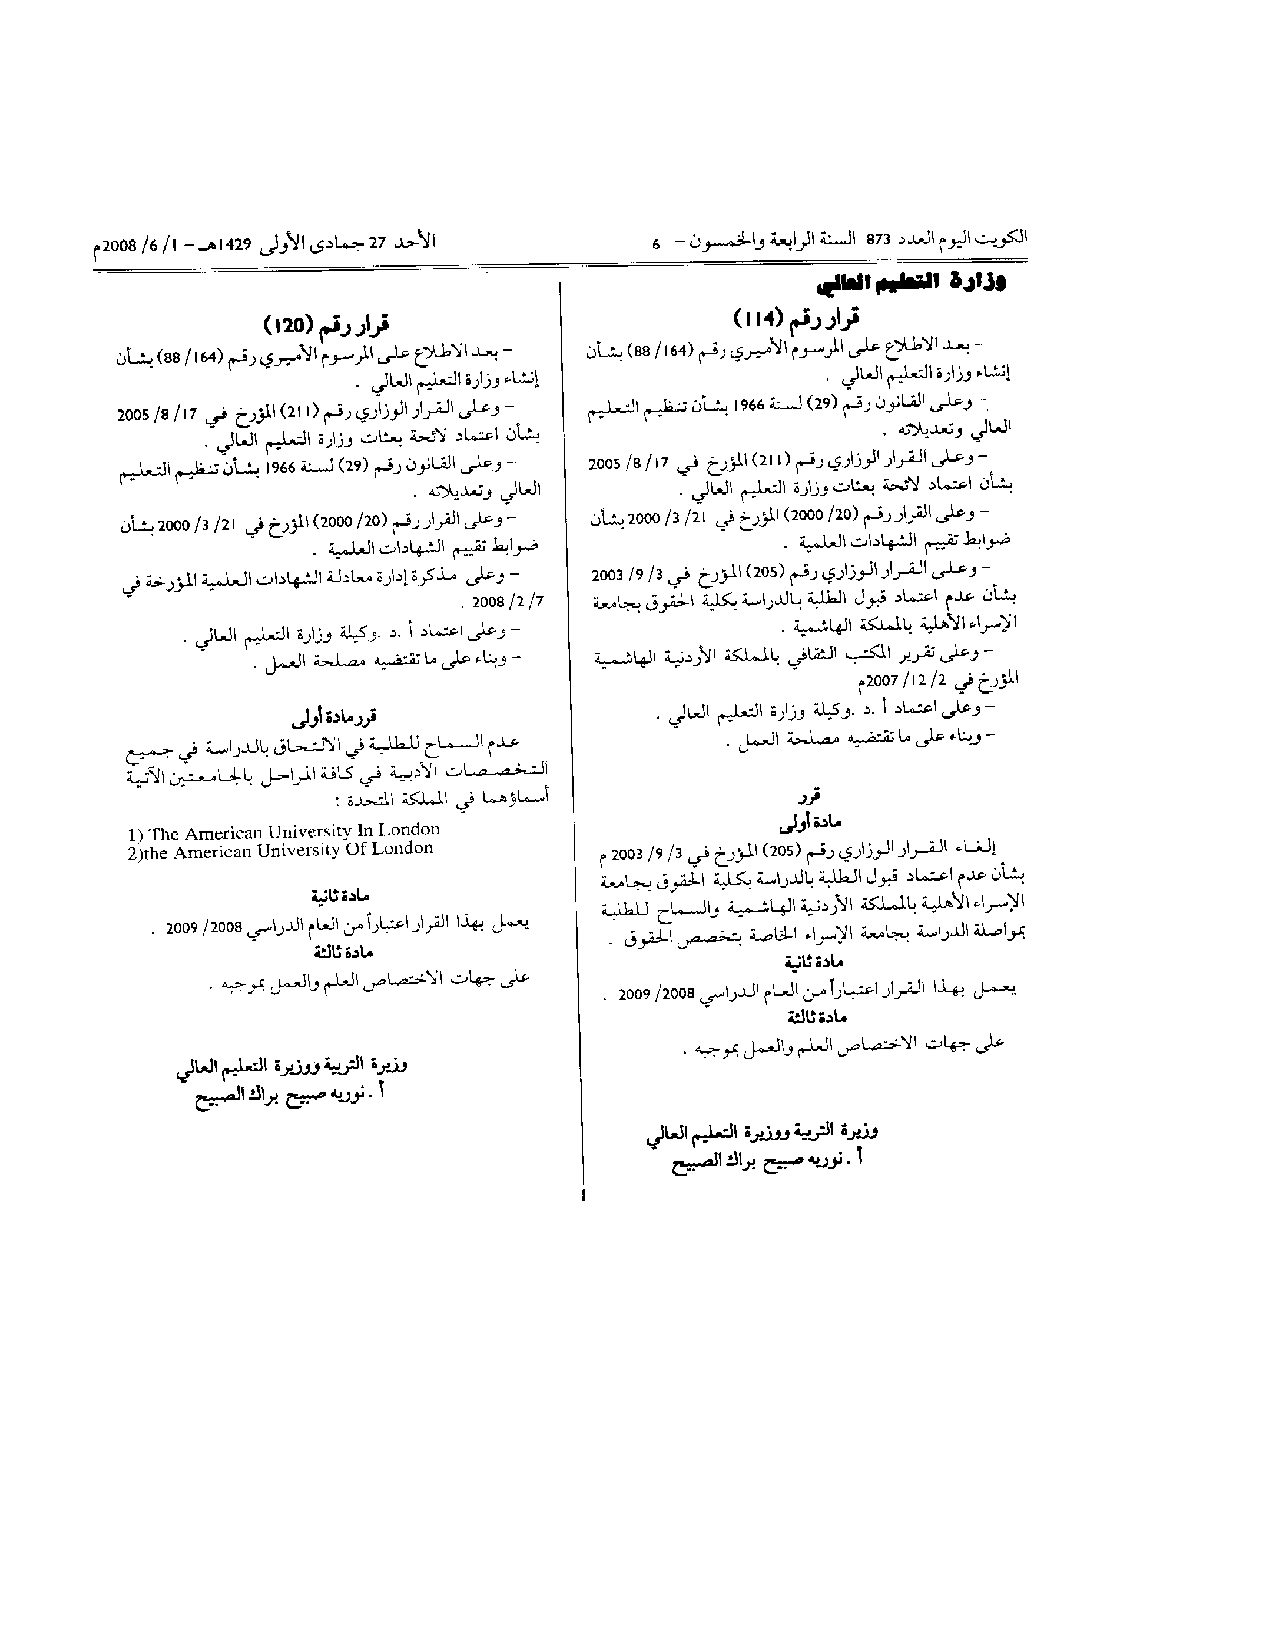 الكويت اليوم العدد 873 السنة الرابعة والخمسون - 6
الأحد 27 جمادى الأولى 1429هـ - 1 /6 /2008م
وزارة التعليم العالي
قرار رقم (114)
- بعد الاطلاع على المرسوم الأميري رقم (164/ 88) بشأن
إنشاء وزارة التعليم العالي .
- وعلى القانون رقم (29) لسنة 1966 بشأن تنظيم التعليم
العالي وتعديلاته .
- وعلى القرار الوزاري رقم (211) المؤرخ في 17/ 8/ 2005
بشأن اعتماد لائحة بعثات وزارة التعليم العالي .
- وعلى القرار رقم (20/ 2000) المؤرخ في 21/ 3/ 2000 بشأن
ضوابط تقييم الشهادات العلمية .
- وعلى القرار الوزاري رقم (205) المؤرخ في 3/ 9/ 2003
بشأن عدم اعتماد قبول الطلبة بالدراسة بكلية الحقوق بجامعة
الإسراء الأهلية بالمملكة الهاشمية .
- وعلى تقرير المكتب الثقافي بالمملكة الأردنية الهاشمية
المؤرخ في 2/ 12/ 2007م
- وعلى اعتماد أ .د .وكيلة وزارة التعليم العالي .
- وبناء على ما تقتضيه مصلحة العمل .
قرر
مادة أولى
إلغاء القرار الوزاري رقم (205) المؤرخ في 3/ 9/ 2003 م
بشأن عدم اعتماد قبول الطلبة بالدراسة بكلية الحقوق بجامعة
الإسراء الأهلية بالمملكة الأردنية الهاشمية والسماح للطلبة
بمواصلة الدراسة بجامعة الإسراء الخاصة بتخصص الحقوق .
مادة ثانية
يعمل بهذا القرار اعتباراً من العام الدراسي 2008/ 2009 .
مادة ثالثة
على جهات الاختصاص العلم والعمل بموجبه .
وزيرة التربية ووزيرة التعليم العالي
أ . نوريه صبيح براك الصبيح
قرار رقم (120)
- بعد الاطلاع على المرسوم الأميري رقم (164/ 88) بشأن
إنشاء وزارة التعليم العالي .
- وعلى القرار الوزاري رقم (211) المؤرخ في 17/ 8/ 2005
بشأن اعتماد لائحة بعثات وزارة التعليم العالي .
- وعلى القانون رقم (29) لسنة 1966 بشأن تنظيم التعليم
العالي وتعديلاته .
- وعلى القرار رقم (20/ 2000) المؤرخ في 21/ 3/ 2000 بشأن
ضوابط تقييم الشهادات العلمية .
- وعلى مذكرة إدارة معادلة الشهادات العلمية المؤرخة في
7/ 2/ 2008 .
- وعلى اعتماد أ .د .وكيلة وزارة التعليم العالي .
- وبناء على ما تقتضيه مصلحة العمل .
قرر مادة أولى
عدم السماح للطلبة في الالتحاق بالدراسة في جميع
التخصصات الأدبية في كافة المراحل بالجامعتين الآتية
أسماؤهما في المملكة المتحدة :
1) The American University In London
2)the American University Of London
مادة ثانية
يعمل بهذا القرار اعتباراً من العام الدراسي 2008/ 2009 .
مادة ثالثة
على جهات الاختصاص العلم والعمل بموجبه .
وزيرة التربية ووزيرة التعليم العالي
أ . نوريه صبيح براك الصبيح